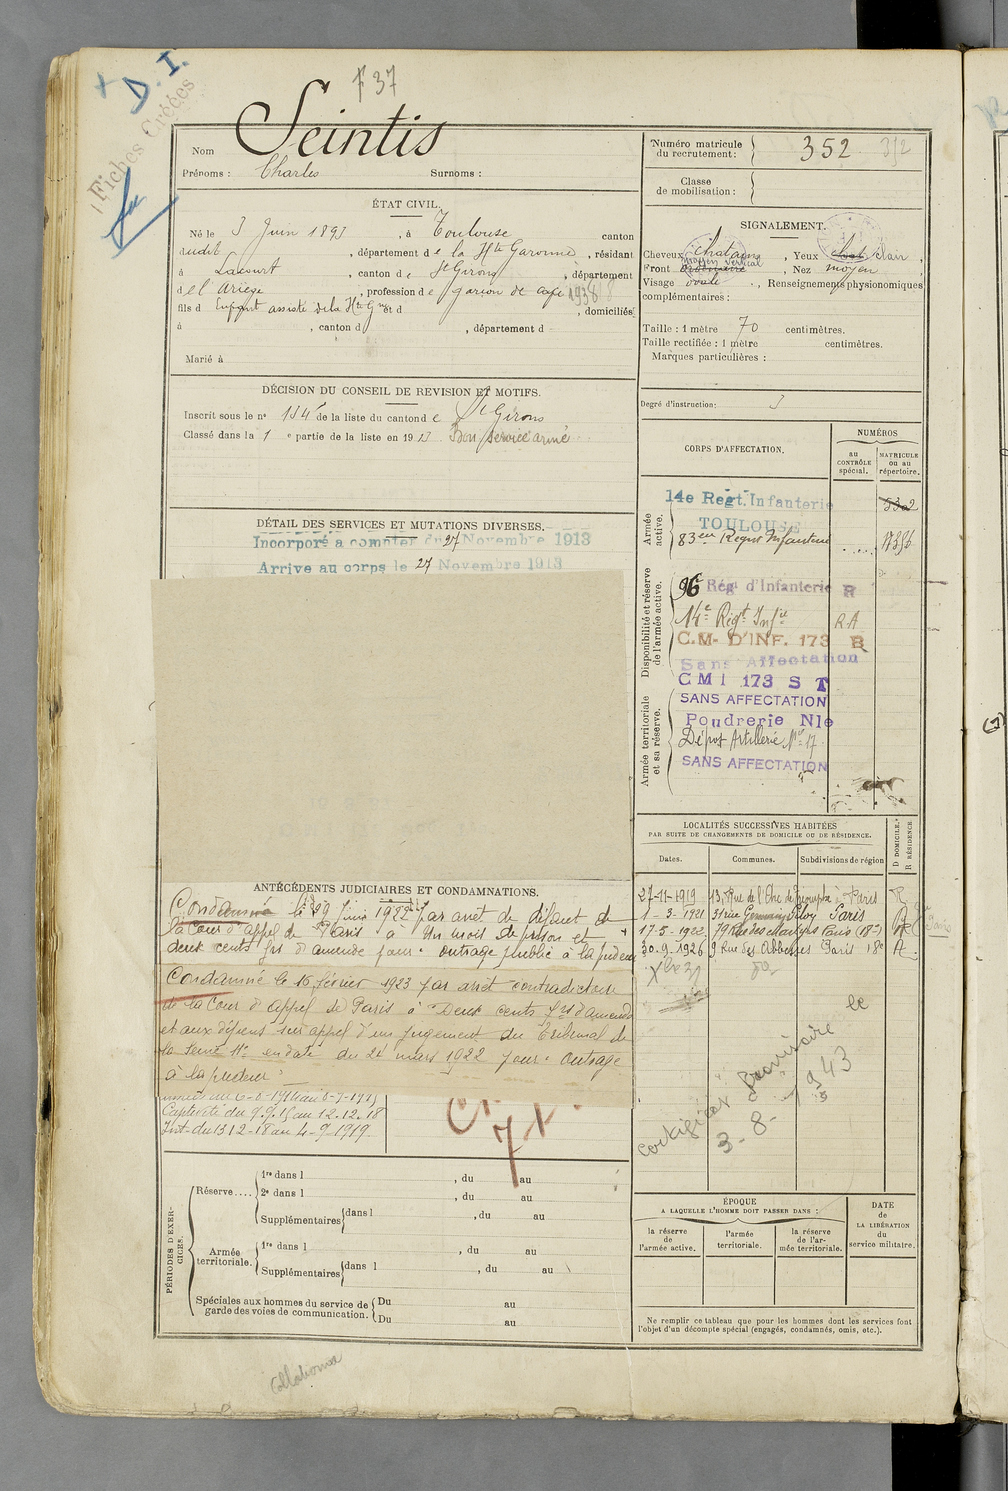 F 37
D. I.
Fiches Créées
Nom Seintis
Prénoms : Charles Surnoms :
Numéro matricule du recrutement : 352
Classe de mobilisation :
ÉTAT CIVIL.
Né le 3 Juin 1893, à Toulouse canton
dudit, département de la Hte Garonne, résidant
à Lacourt, canton de St Girons, département
de l'Ariège, profession de garçon de café 1938
fils d Enfant assisté de la Hte Gne et d , domiciliés
à , canton d , département d
Marié à
SIGNALEMENT.
Cheveux chatains, Yeux clair,
Front moyen vertical, Nez moyen,
Visage ovale, Renseignements physionomiques
complémentaires :
Taille : 1 mètre 70 centimètres.
Taille rectifiée : 1 mètre centimètres.
Marques particulières :
Degré d'instruction : 3
DÉCISION DU CONSEIL DE REVISION ET MOTIFS.
Inscrit sous le n° 154 de la liste du canton de St Girons
Classé dans la 1e partie de la liste en 1913 Bon service armé
DÉTAIL DES SERVICES ET MUTATIONS DIVERSES.
Incorporé à compter du 27 Novembre 1913
Arrivé au corps le 27 Novembre 1913
CORPS D'AFFECTATION.
NUMÉROS
au CONTRÔLE spécial.
MATRICULE ou au répertoire.
Armée active.
14e Regt. Infanterie
TOULOUSE
83eme Regmt Infanterie
Disponibilité et réserve de l'armée active.
96e Rég d'Infanterie R
14e Régt Infie RA
C.M. D'INF. 173 R
Sans Affectation
CMI 173 S T
Armée territoriale et sa réserve.
SANS AFFECTATION
Poudrerie Nle
Dépôt Artillerie No 17
SANS AFFECTATION
LOCALITÉS SUCCESSIVES HABITÉES
PAR SUITE DE CHANGEMENTS DE DOMICILE OU DE RÉSIDENCE.
Dates. Communes. Subdivisions de région
D DOMICILE.
R RÉSIDENCE
27-11-1919 13, Rue de l'Arc de Triomphe à Paris R
1-3-1921 31 rue Germain Pilon Paris R
17-5-1922 79 Rue des Martyrs Paris (18e) R
30.9.1926 9 Rue des Abbesses Paris 18e R
ANTÉCÉDENTS JUDICIAIRES ET CONDAMNATIONS.
Condamné le 29 Juin 1922 par arrêt de défaut de
la Cour d'appel de Paris à Un mois de prison et
deux cents frs d'amende pour outrage public à la pudeur
Condamné le 15 février 1923 par arrêt contradictoire
de la Cour d'appel de Paris à Deux cents frs d'amende
et aux dépens sur appel d'un jugement du Tribunal de
la Seine en date du 24 mars 1922 pour outrage
à la pudeur
Captivité du 9.9.15 au 12.12.18
Int. du 13 12-18 au 4-9-1919
le
provisoire
3-8-1943
PÉRIODES D'EXERCICES.
Réserve.... 1re dans l , du au
2e dans l , du au
Supplémentaires dans l , du au
Armée territoriale. 1re dans l , du au
Supplémentaires dans l , du au
Spéciales aux hommes du service de garde des voies de communication. Du au
Du au
ÉPOQUE
A LAQUELLE L'HOMME DOIT PASSER DANS :
la réserve de l'armée active.
l'armée territoriale.
la réserve de l'armée territoriale.
DATE de LA LIBÉRATION du service militaire.
Ne remplir ce tableau que pour les hommes dont les services font
l'objet d'un décompte spécial (engagés, condamnés, omis, etc.).